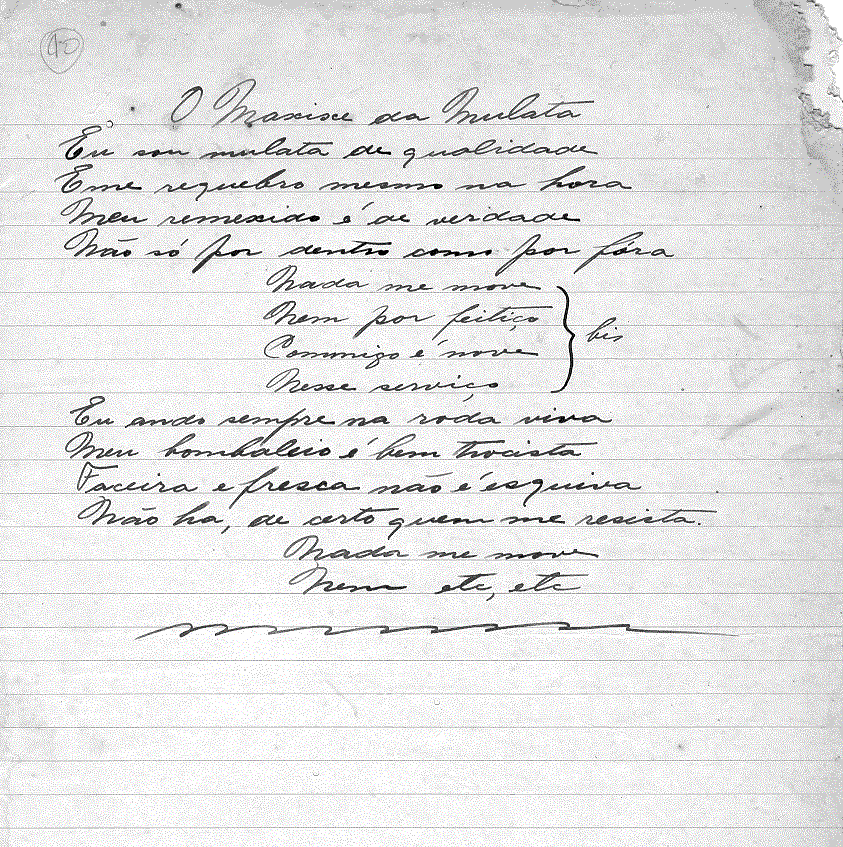 40
O Maxixe da Mulata
Eu sou mulata de qualidade
E me requebro mesmo na hora
Meu remexido é de verdade
Não só por dentro como por fóra
Nada me move
Nem por feitiço
Commigo é nove
Nesse serviço
bis
Eu ando sempre na roda viva
Meu bombaleio é bem trocista
Faceira e fresca não é esquiva
Não ha, de certo quem me resista.
Nada me move
Nem etc, etc